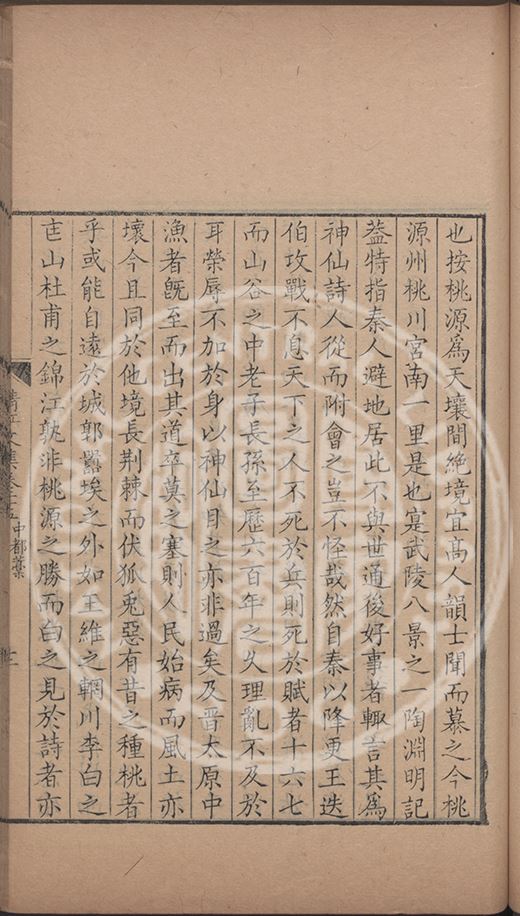 也按桃源爲天壤間絕境宜髙人韻士聞而慕之今桃
源州桃川宮南一里是也寔武陵八景之一陶淵明記
葢特指秦人避地居此不與世通後好事者輙言其爲
神仙詩人從而附會之豈不怪哉然自秦以降更王迭
伯攻戰不息天下之人不死於兵則死於賦者十六七
而山谷之中老子長孫至歷六百年之久理亂不及於
耳榮辱不加於身以神仙目之亦非過矣及晋太原中
漁者旣至而出其道卒莫之塞則人民始病而風土亦
壞今且同於他境長荆棘而伏狐兎惡有昔之種桃者
乎或能自遠於城郭囂埃之外如王維之輞川李白之
匡山杜甫之錦江孰非桃源之勝而白之見於詩者亦
清江文集卷二十五中都藁